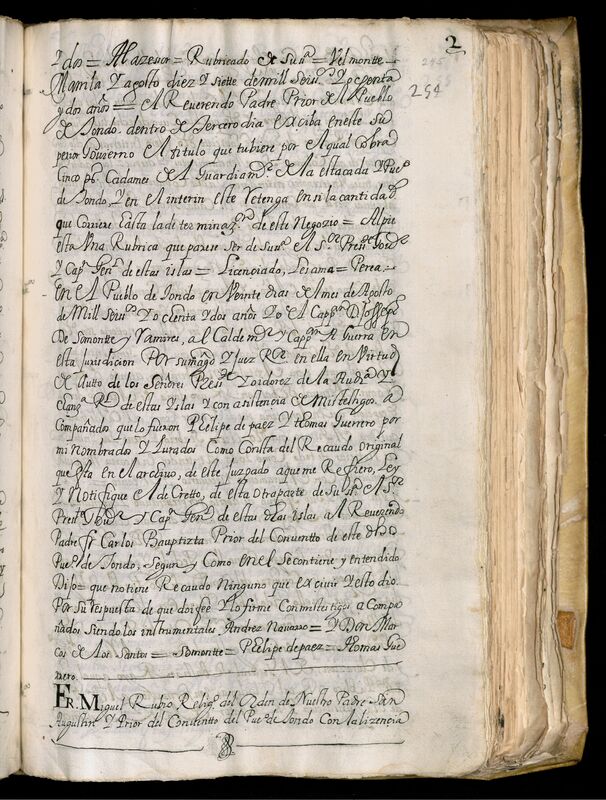 2
254
Y dos = Alazevar = Rubricado de Su sª = Velmontte =
Manila Y agosto diez Y siette de mill seisº Y ochenta
y dos años = Al Reverendo Padre Prior del Pueblo
de Tondo. dentro de tercero dia exciba en este su
perior Govierno el titulo que tubiere por el qual cobra
Cinco pº Cada mes del Guardian de la estacada Y Pueº
de Tondo, Y en el interin este Retenga en si la cantidad
que Corriere hasta la determinazºn de este Negozio = Al pie
esta Una Rubrica que parese ser de su sª el Sr. Presste
Y Capn Genl de estas islas = Licenciado, Lesama = Perea =
En el Pueblo de Tondo en Veinte dias del mes de Agosto
de Mill seisº Y ochenta Y dos años Yo el Capn D Joseph
De Somontte y Ramires, alCalde mor y Capn A Guerra en
esta Jurisdicion Por su magd Y Juez Rr en ella en Virtud
de Autto de los señores Presste Y oidorez de la Audª Y
chanzª Rl de estas Yslas Y con asistencia de Mis testigos. a
Compañados que lo fueron Phelipe de paez Y thomas Guerrero por
mi Nombrados Y Jurados Como Consta del Recaudo original
que esta en el archivo, de este juzgado a que me Refiero, Ley
Y Notifique el de Cretto, de esta Otra parte de Su sª el Sr.
Presste Govr Y Capn Genl de estas Yslas islas al Reverendo
Padre fr Carlos Bauptizta Prior del Conventto de este dho
Pueº de Tondo, Segun Y Como en el se contiene y entendido
Dijo = que no tiene Recaudo Ninguno que exivir Y esto dio
Por su respuesta de que doi feé Y lo firme Con mis testigos a Compa
ñados siendo los instrumentales Andrez Navarro = Y Don Mar
cos de los Santos = Somontte = Phelipe de paez = thomas Gue
rrero.
FR. Miguel Rubio Religº del orden de Nuestro Padre San
Augustin Y Prior del Conventto del Pueº de Tondo Con la lizencia